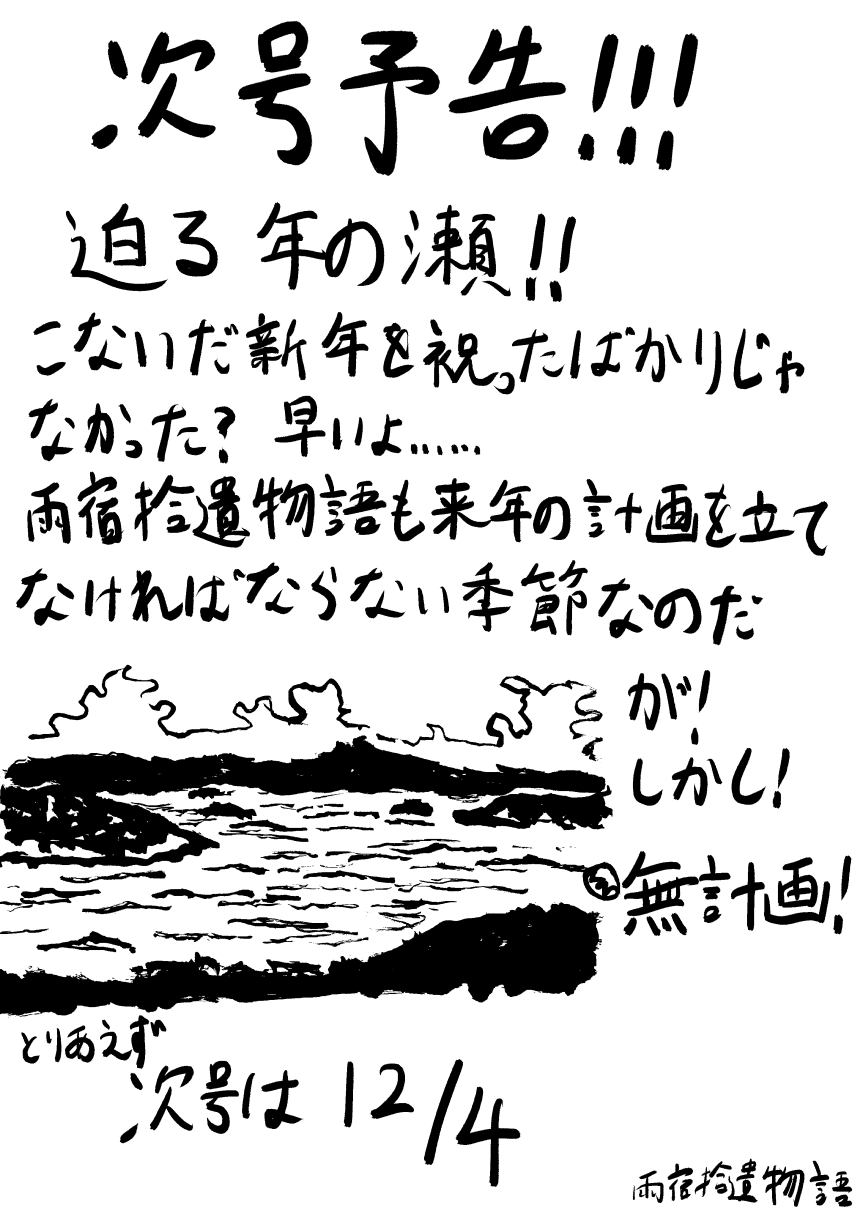 次号予告!!!
迫る 年の瀬!!
こないだ新年を祝ったばかりじゃ
なかった? 早いよ……
雨宿拾遺物語も来年の計画を立て
なければならない季節なのだ
が!
しかし!
無計画!
とりあえず
次号は 12/4
雨宿拾遺物語